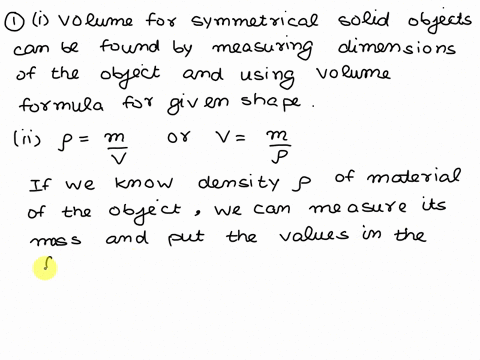 ① (i) Volume for symmetrical solid objects
can be found by measuring dimensions
of the object and using volume
formula for given shape.
(ii) ρ = m/V or V = m/ρ
If we know density ρ of material
of the object, we can measure its
mass and put the values in the